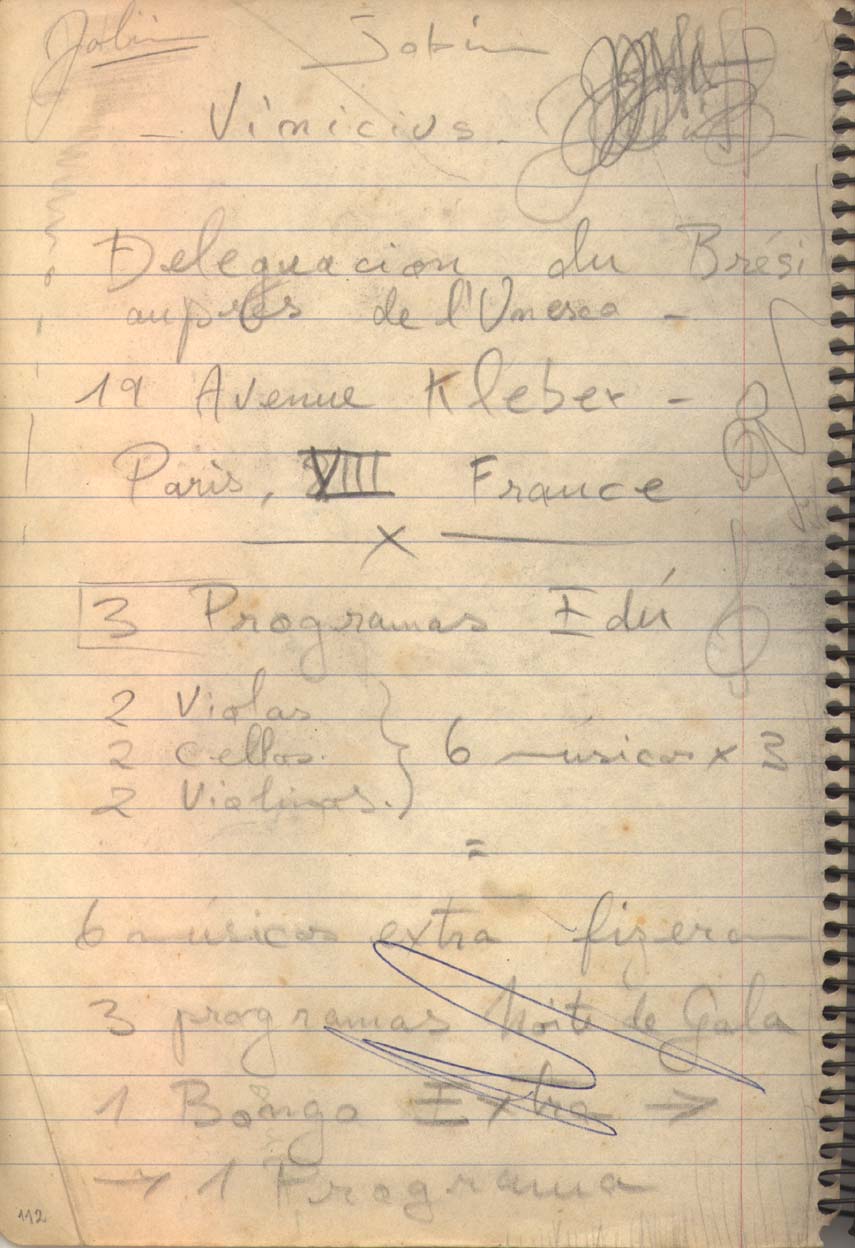 Jobim Jobim
- Vinicius -
Deleguacion du Brési
auprès de l'Unesco -
19 Avenue Kleber -
Paris, VIII France
X
3 Programas Edú
2 Violas
2 Cellos. } 6 músicos x 3
2 Violinos.
=
6 músicos extra fizeram
3 programas Noite de Gala
1 Bongo Extra →
→ 1 Programa
112